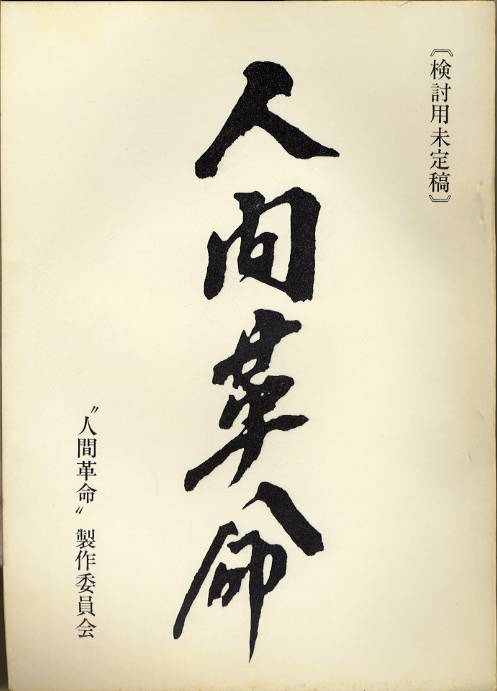 〔検討用未定稿〕
人間革命
〝人間革命〟製作委員会